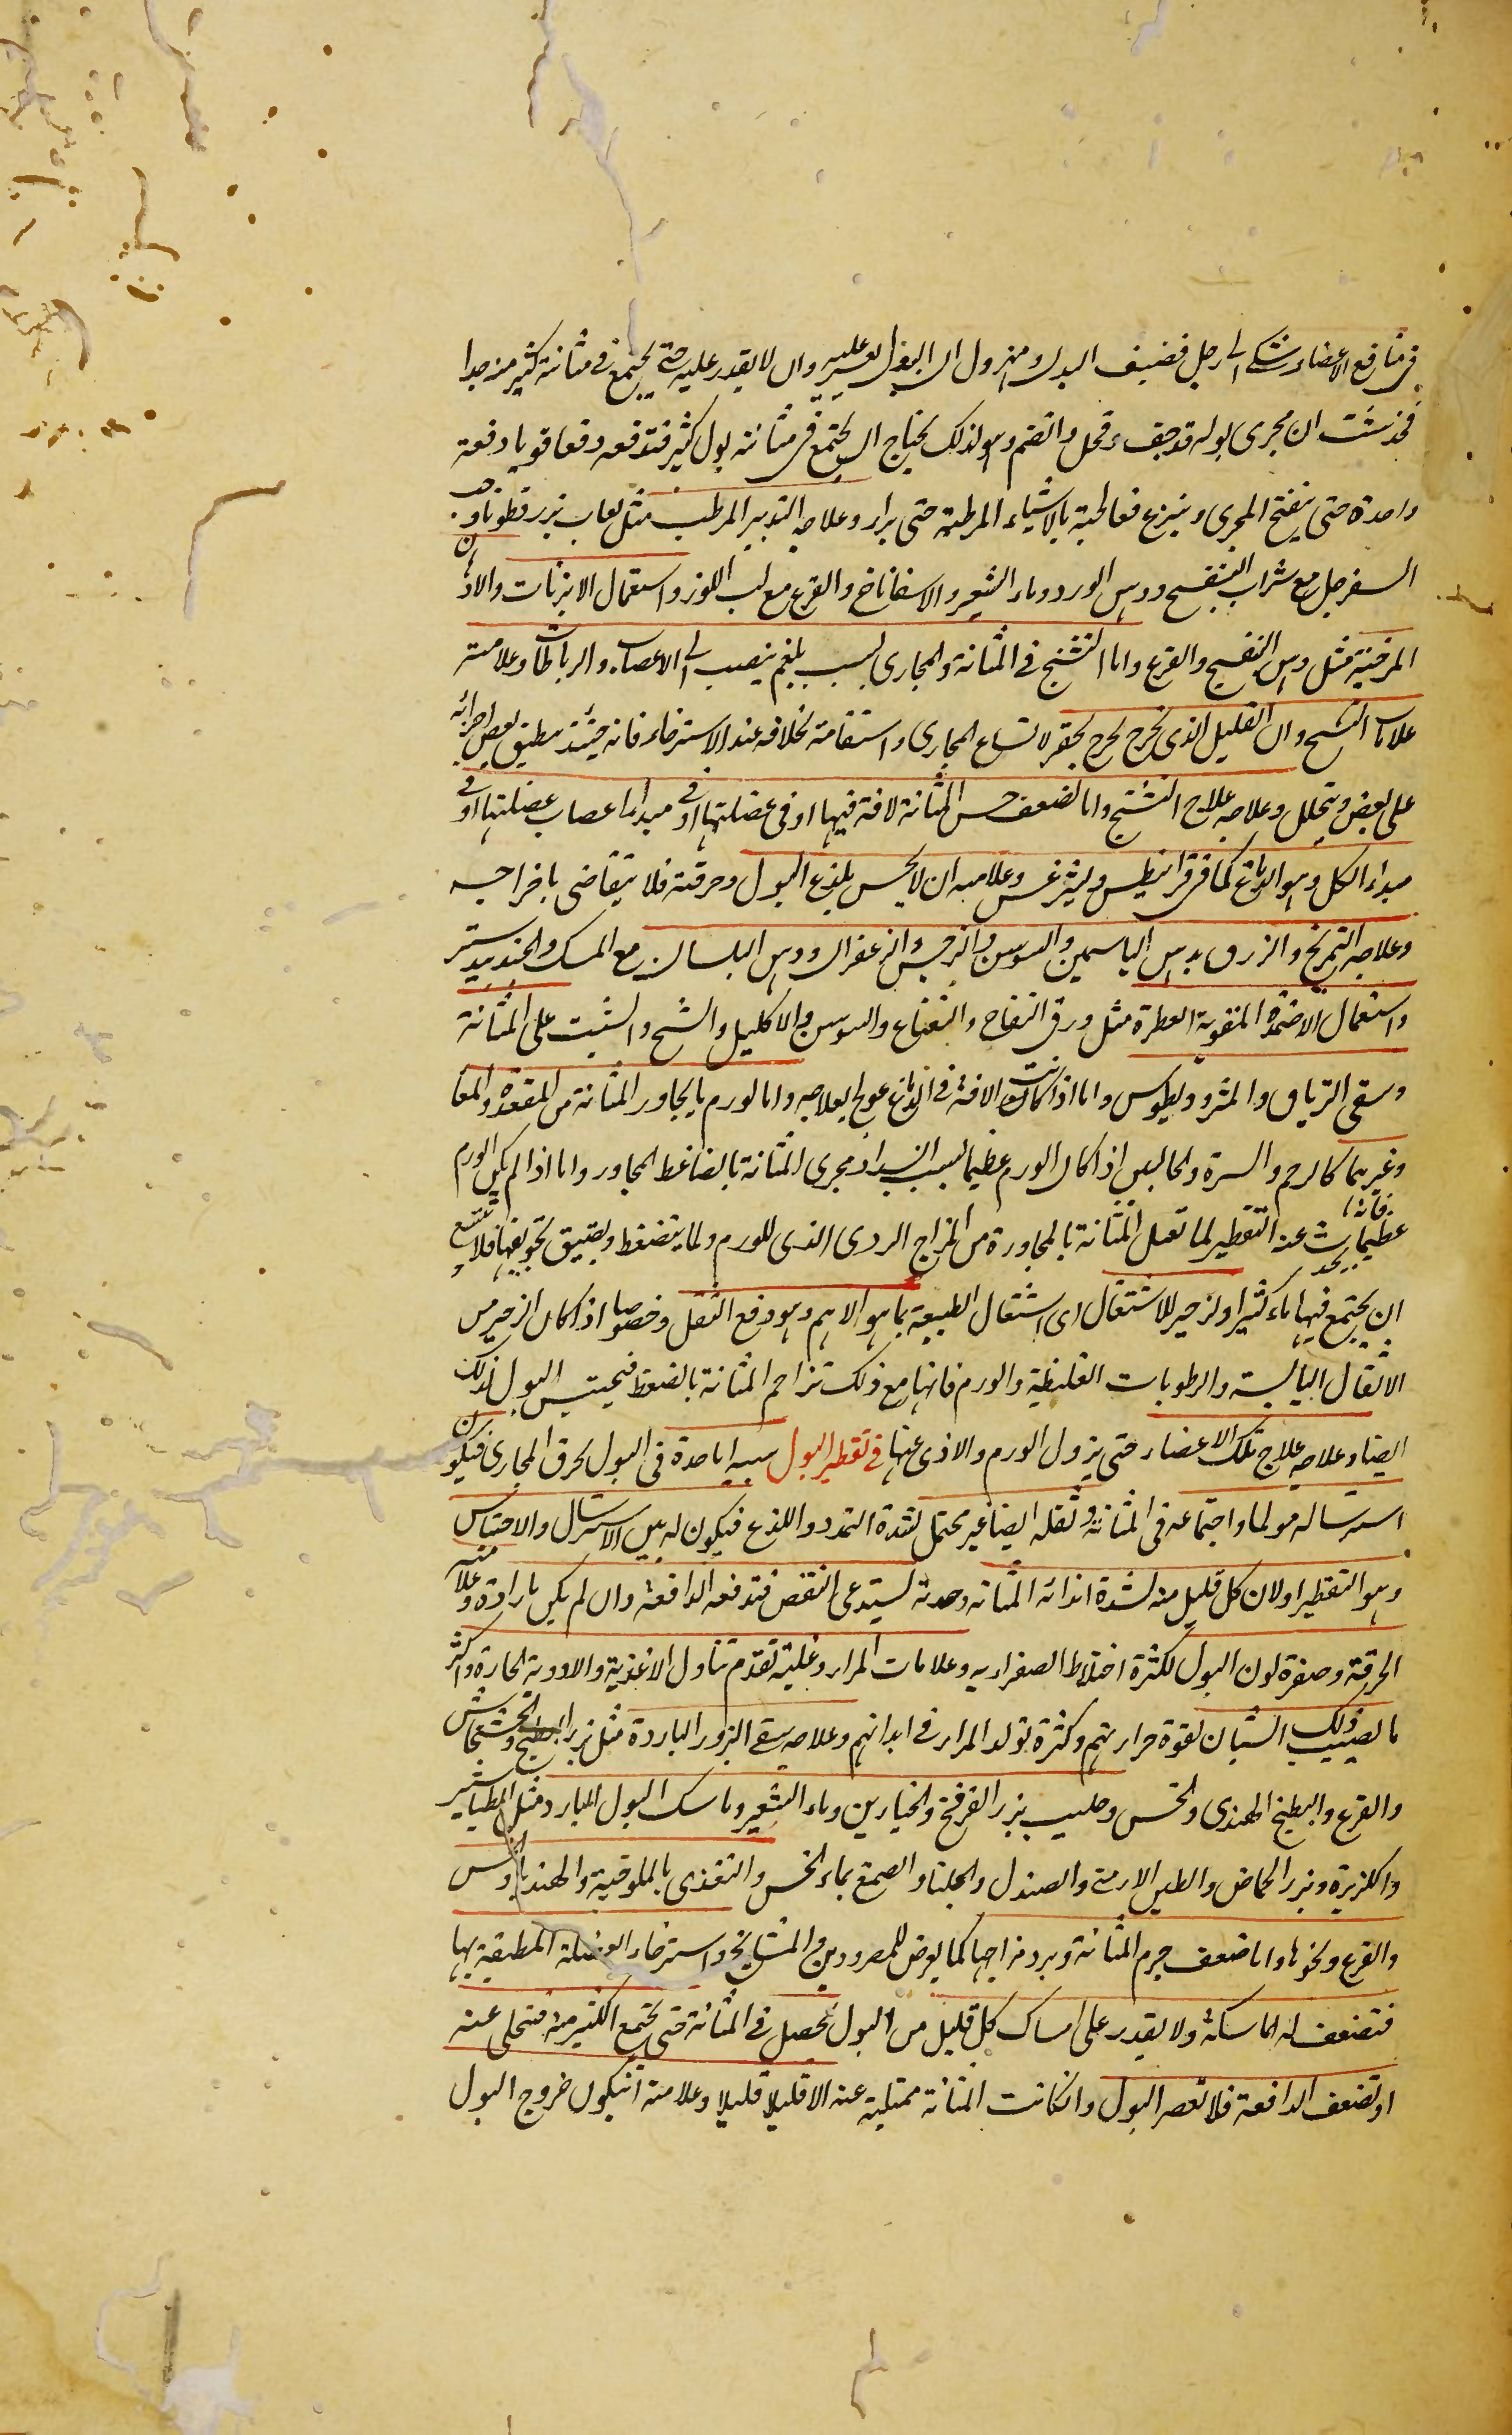 فى منافع الاعضاء شكى الى رجل قضيف البدن مهزول ان البول يعسر عليه وان لا يقدر عليه حتى يجتمع فى مثانته كثير منه جدا
فحدست ان مجرى بوله قد جف وقحل وانضم وهو لذلك يحتاج ان يجتمع فى مثانته بول كثير فتدفعه دفعا قويا دفعة
واحدة حتى ينفتح المجرى وينزع فعالجته بالاشياء المرطبة حتى برأ وعلاجه التدبير المرطب مثل لعاب بزر قطونا وحب
السفرجل مع شراب البنفسج ودهن الورد وماء الشعير والاسفاناخ والقرع مع لب اللوز واستعمال الابزنات والادهان
المرخية مثل دهن البنفسج والقرع واما التشنج فى المثانة والمجارى بسبب بلغم ينصب الى الاعصاب والرباطات وعلامته
علامات التشنج وان القليل الذى يخرج يخرج بحفز لاتساع المجارى واستقامته بخلافه عند الاسترخاء فانه حينئذ ينطبق بعض اجزائه
على بعض ويتحلل وعلاجه علاج التشنج واما لضعف حس المثانة لافة فيها او فى عضلتها او فى مبدأ اعصاب عضلتها او فى
مبداء الكل وهو الدماغ كما فى قرانيطس وليثرغس وعلامته ان لا يحس بلذع البول وحرقته فلا يتقاضى باخراجه
وعلاجه التمريخ والزرق بدهن الياسمين والسوسن والنرجس والزعفران ودهن البلسان مع المسك والجندبيدستر
واستعمال الاضمدة المقوية العطرة مثل ورق التفاح والنعناع والسوسن والاكليل والشيح والشبت على المثانة
وسقى الترياق والمثروديطوس واما اذا كانت الافة فى الدماغ عولج بعلاجه واما لورم ما يجاور المثانة من المقعدة والمعا
وغيرهما كالرحم والسرة والحالبين اذا كان الورم عظيما بسبب انسداد مجرى المثانة بالضاغط المجاور واما اذا لم يكن الورم
عظيما فانه يحدث عنه التقطير لما تقبل المثانة بالمجاورة من المزاج الردى الذى للورم ولما ينضغط ويضيق تجويفها فلا تتسع
ان يجتمع فيها ماء كثير او لزحير للاشتغال اى اشتغال الطبيعة بما هو الاهم وهو دفع الثقل وخصوصا اذا كان الزحير من
الاثقال اليابسة والرطوبات الغليظة والورم فانها مع ذلك تزاحم المثانة بالضغط فيحتبس البول لذلك
ايضا وعلاجه علاج تلك الاعضاء حتى يزول الورم والاذى عنها فى تقطير البول سببه اما حدة فى البول تحرق المجارى فيكون
استرساله مولما واجتماعه فى المثانة وثقله ايضا غير محتمل لشدة التمدد واللذع فيكون له بين الاسترسال والاحتباس
وهو التقطير او لان كل قليل منه لشدة ايذائه المثانة وحدته يستدعى النفض فتدفعه الدافعة وان لم يكن بارادة وعلامته
الحرقة وصفرة لون البول لكثرة اختلاط الصفراء به وعلامات المرار وغلبته تقدم تناول الاغذية والادوية الحارة واكثر
ما يصيب ذلك الشبان لقوة حرارتهم وكثرة تولد المرار فى ابدانهم وعلاجه سقى البزور الباردة مثل بزر البطيخ والخشخاش
والقرع والبطيخ الهندى والخس وحليب بزر القرفخ والخيارين وماء الشعير وماسك البول البارد مثل الطباشير
والكزبرة وبزر الحماض والطين الارمنى والصندل والجلنار والصمغ بماء الخس والتغذى بالملوخية والهندبا والخس
والقرع ونحوها واما ضعف جرم المثانة وبرد مزاجها كما يعرض للمصرودين والمشايخ واسترخاء العضلة المطبقة بها
فتضعف له الماسكة ولا يقدر على امساك كل قليل من البول يحصل فى المثانة حتى يجتمع الكثير منه فتخلى عنه
او تضعف الدافعة فلا تعصر البول وان كانت المثانة ممتلية عنه الا قليلا قليلا وعلامته ان يكون خروج البول